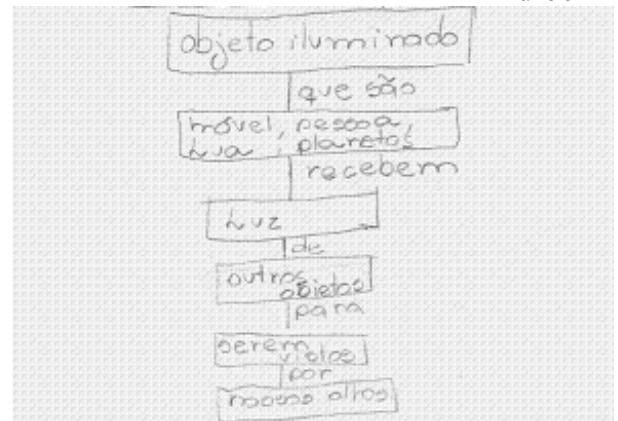 objeto iluminado
que são
móvel, pessoa,
Lua, planetas
recebem
Luz
de
outros
objetos
para
serem
vistos
por
nossos olhos